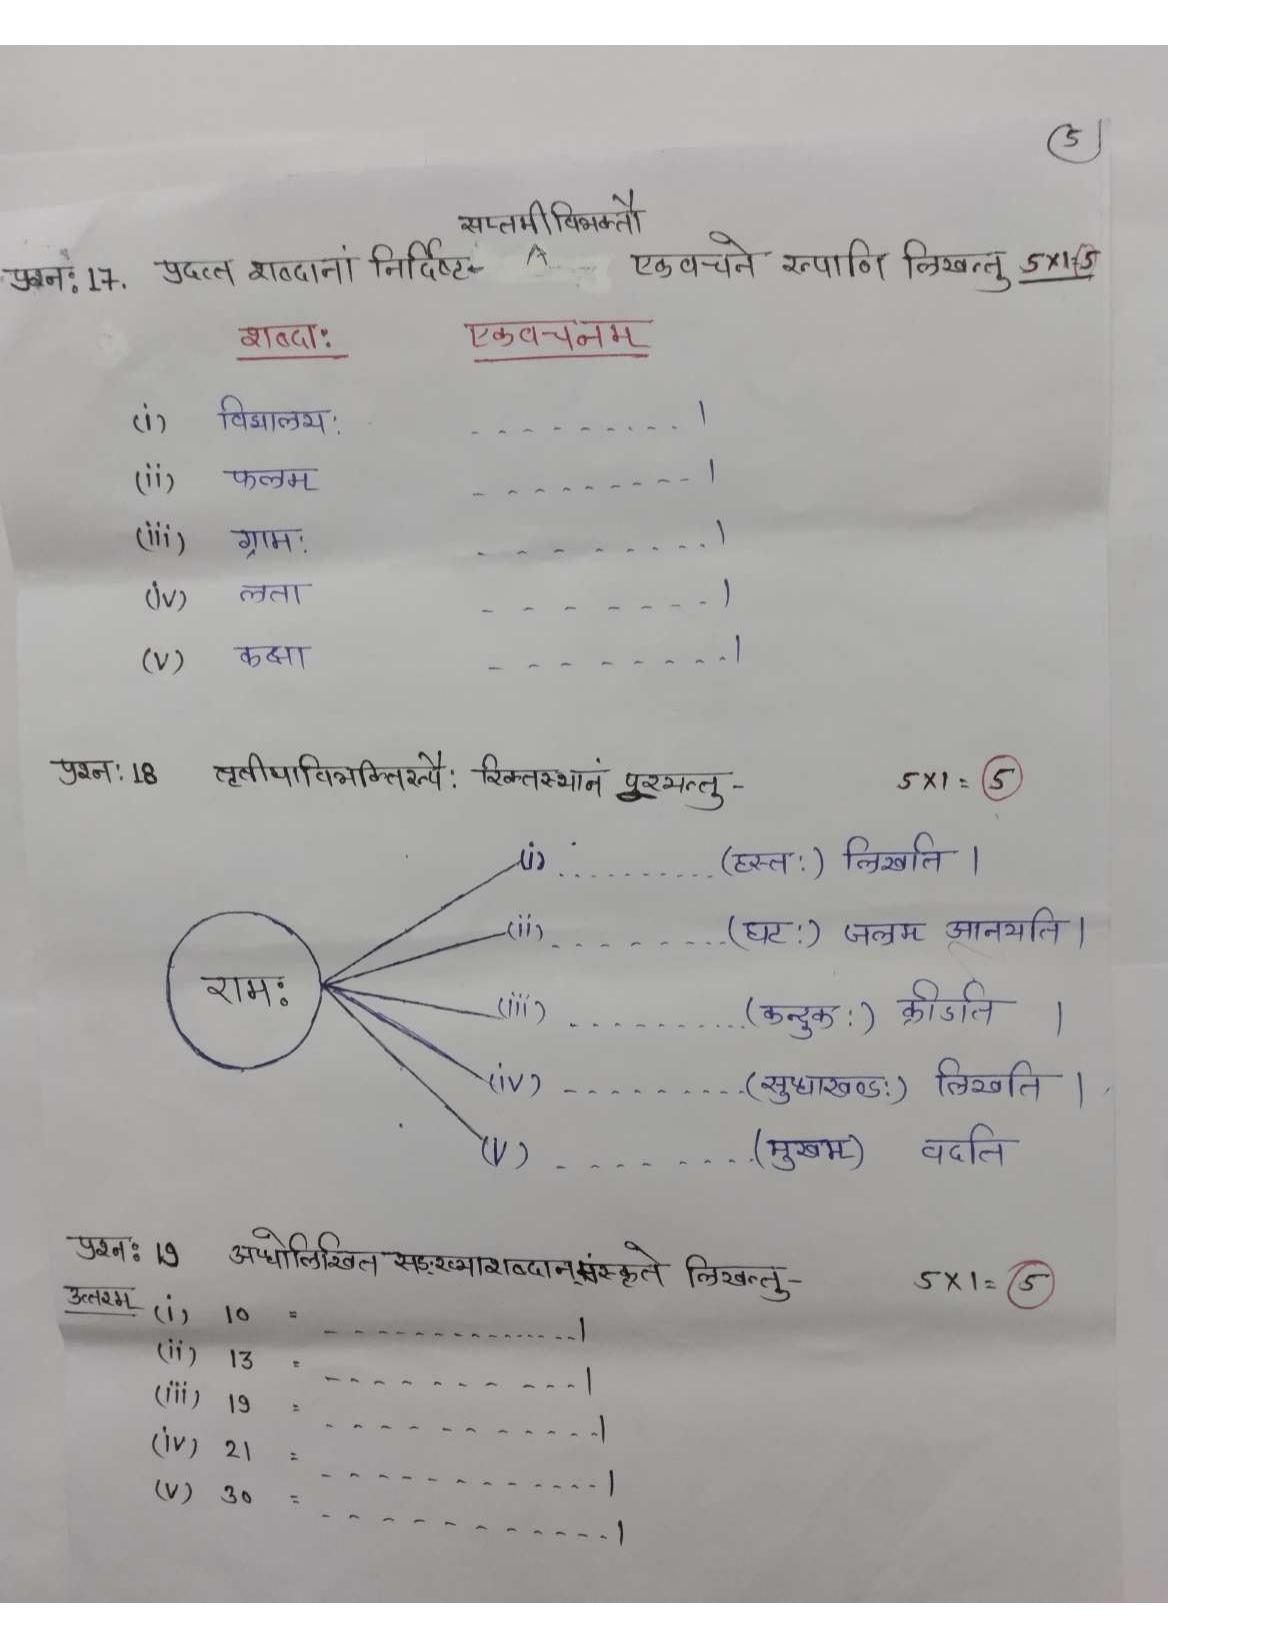 5
सप्तमीविभक्तौ
प्रश्न: 17. प्रदत्त शब्दानां निर्दिष्ट- ^ एकवचने रूपाणि लिखन्तु 5×1=5
शब्दा: एकवचनम्
(i) विद्यालय: - - - - - - - - - ।
(ii) फलम् - - - - - - - - - ।
(iii) ग्राम: - - - - - - - - ।
(iv) लता - - - - - - - ।
(v) कक्षा - - - - - - - - ।
प्रश्न: 18 तृतीयाविभक्तिरूपै: रिक्तस्थानं पूरयन्तु - 5×1= 5
(i) .......... (हस्त:) लिखति ।
(ii) - - - - - - - ... (घट:) जलम् आनयति ।
राम:
(iii) .......... (कन्दुक:) क्रीडति ।
(iv) - - - - - - - - - (सुधाखण्ड:) लिखति ।
(v) - - - - - - - - (मुखम्) वदति
प्रश्न: 19 अधोलिखित सङ्ख्याशब्दान् संस्कृते लिखन्तु - 5×1= 5
उत्तरम् (i) 10 = - - - - - - - - - - ।
(ii) 13 = - - - - - - - - - - ।
(iii) 19 = - - - - - - - - - - ।
(iv) 21 = - - - - - - - - - - ।
(v) 30 = - - - - - - - - - - ।